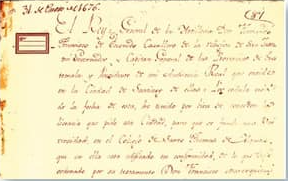 31 de Enero de 1676.
El Rey
General de la Artilleria Don Fernando
Francisco de Escovedo Cavallero de la religion de San Juan
mi Governador, y Capitan General de las Provincias de Gua
temala; y Presidente de mi Audiencia Real que reside
en la Ciudad de Santiago de ellas: Por cedula mia
de la fecha de esta, he tenido por bien de conceder la
licencia que pide esa Ciudad, para que se funde una Uni
versidad, en el Colegio de Santo Thomas de Aquino,
que en ella esta en conformidad, de lo que
ordenado por su testamento Don Francisco Marroquin